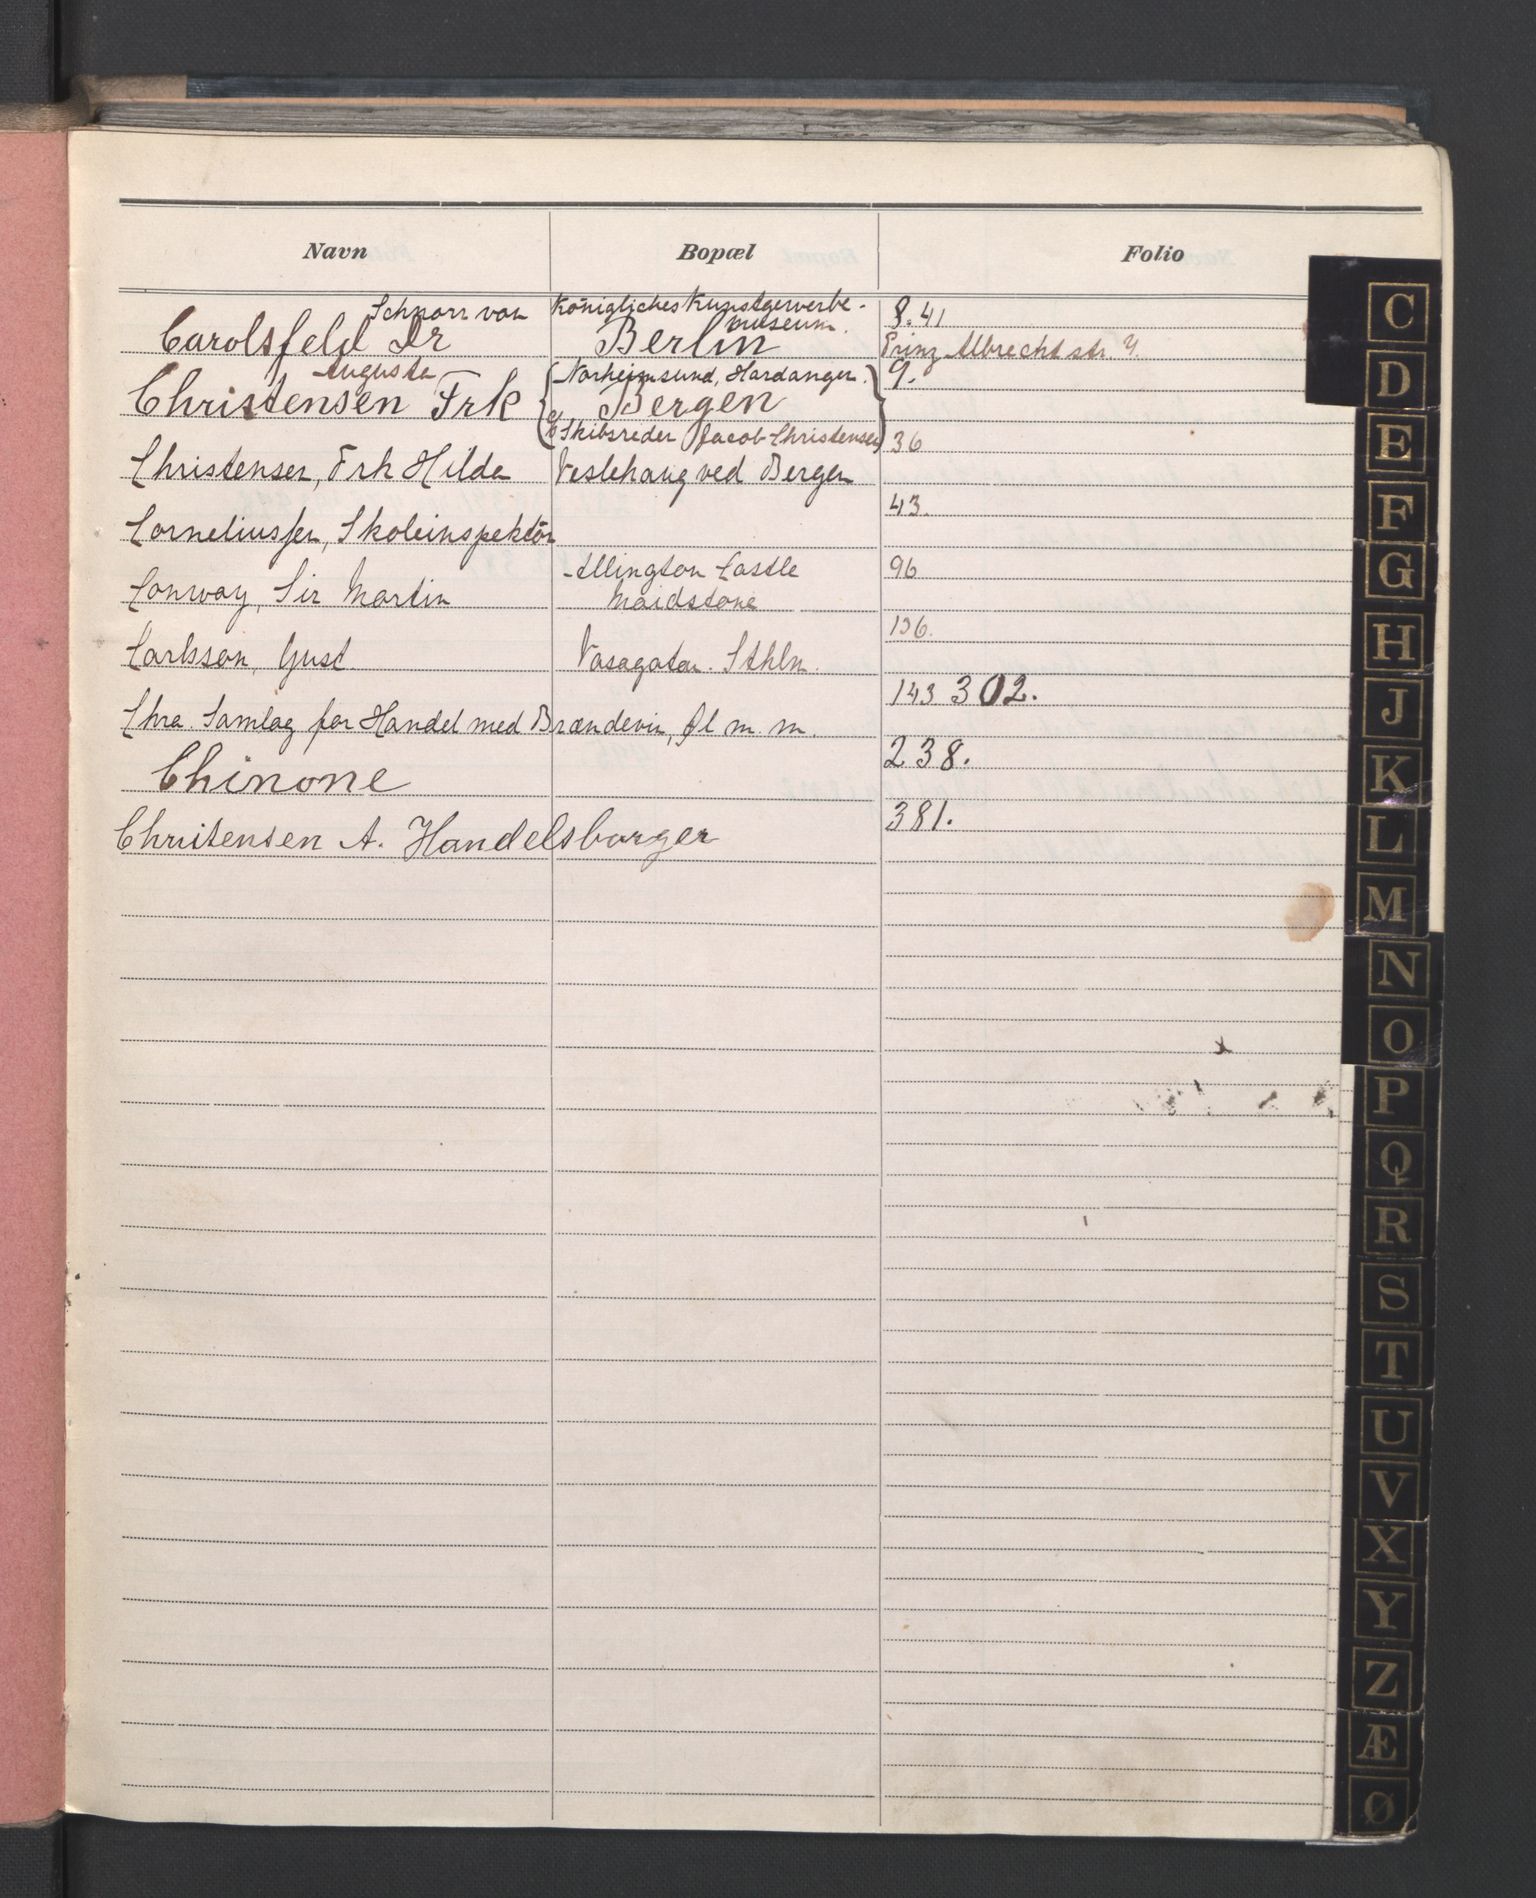 Navn Bopæl Folio
Schnorr von Königliches Kunstgewerbe- 8.41
museum.
Carolsfeld Dr Berlin Prinz Albrechtstr. 7.
Augusta Norheimsund, Hardanger. 9.
Christensen Frk Bergen
Skibsreder Jacob Christensen 36
Christensen, Frk Hilda Veslehaug ved Bergen
43.
Corneliussen, Skoleinspektör
Allington Castle 96
Conway, Sir Martin Maidstone
136.
Carlsson, Gust. Vasagatan. Sthlm.
143 302.
Chra. Samlag for Handel med Brændevin, Øl m. m.
238.
Chinone
381.
Christensen A. Handelsborger
C
D
E
F
G
H
J
K
L
M
N
O
P
Q
R
S
T
U
V
X
Y
Z
Æ
Ø